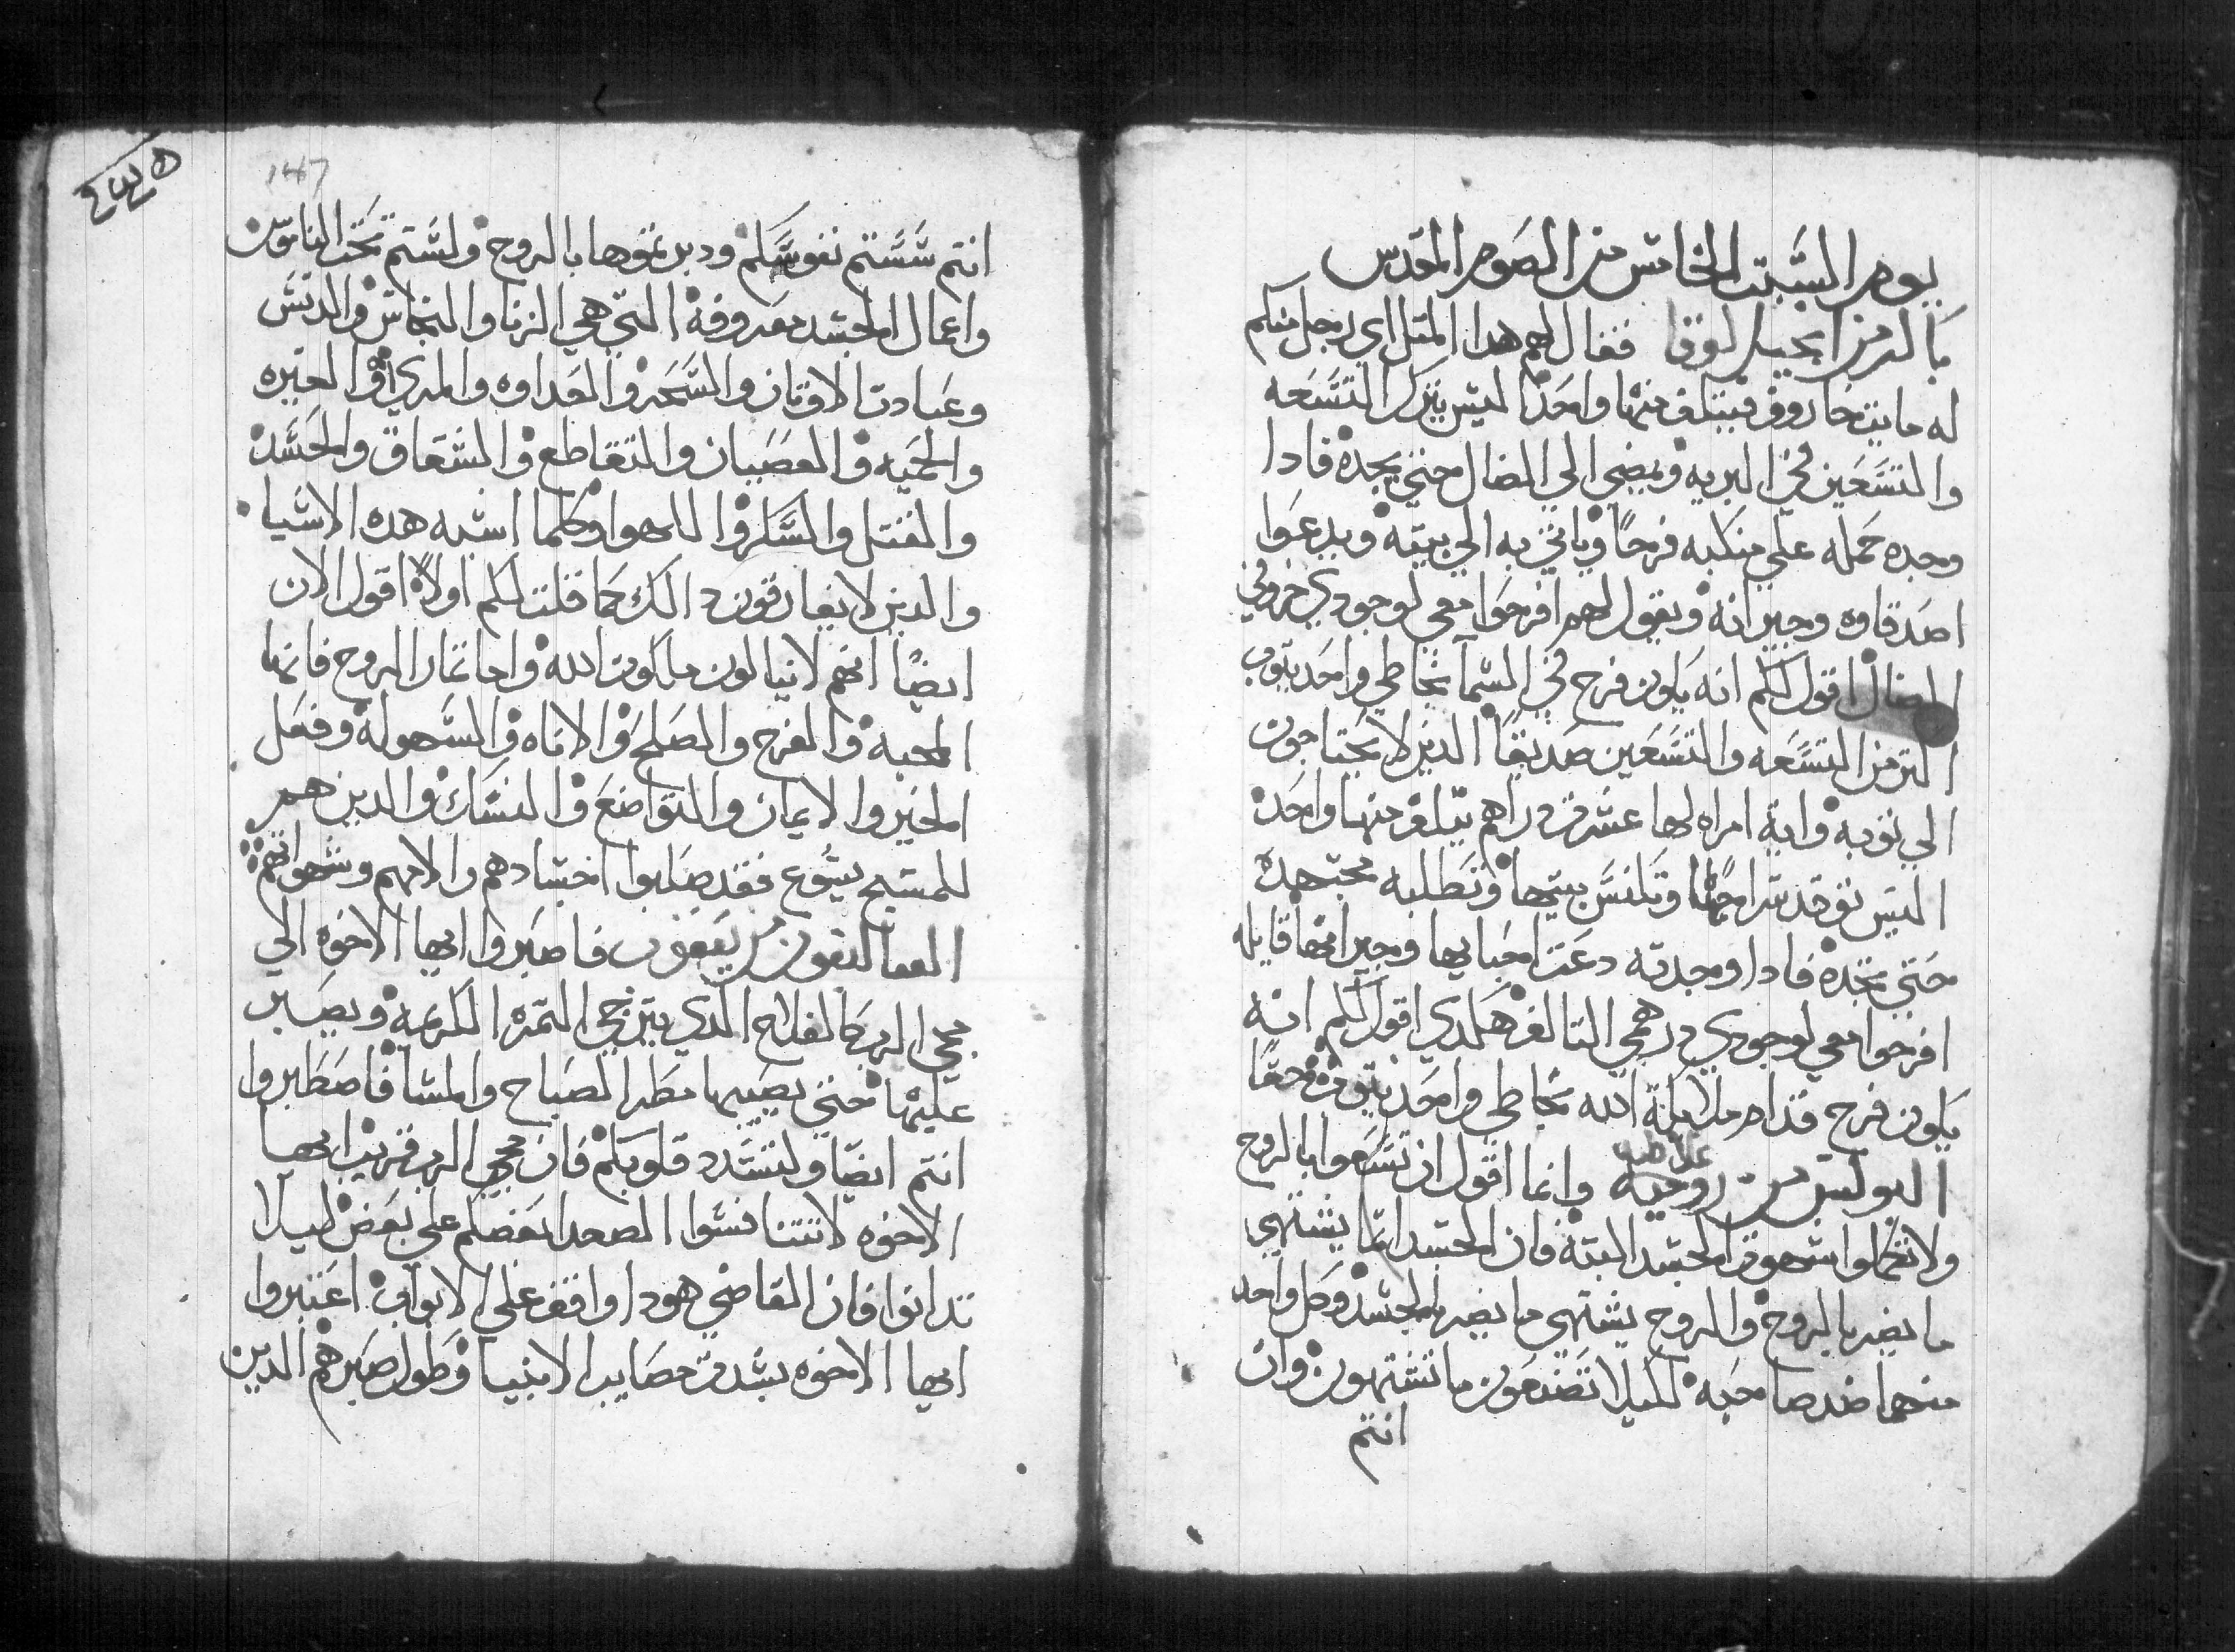 يوم السبت الخامس من الصوم المقدس
باكر من انجيل لوقا فقال لهم هدا المتل اي رجل منكم
له مايت خاروف فيتلف منها واحدًا ليس يترك التسعه
والتسعين في البريه ويمضي الي الضال حتي يجده فادا
وجده حمله علي منكبه فرحًا وياتي به الي بيته ويدعوا
اصدقاوه وجيرانه ويقول لهم افرحوا معي لوجودي خروفي
الضال اقول لكم انه يكون فرح في السما بخاطي واحد يتوب
اكتر من التسعه والتسعين صديقًا الذين لا يحتاجون
الي توبه واية امراه لها عشرة دراهم يتلف منها واحد
اليس توقد سراجها وتكنس بيتها وتطلبه مجتهده
حتي تجده فادا وجدته دعت احبابها وجيرانها قايله
افرحوا معي لوجودي درهمي التالف هكدي اقول لكم انه
يكون فرح قدام ملايكة الله بخاطي واحد يتوب حقًا
غلاطيه
البولس من روميه وانما اقول ان تسعوا بالروح
ولا تكملوا شهوة الجسد البته فان الجسد انما يشتهي
ما يضر بالروح والروح يشتهي ما يضر بالجسد وكل واحد
منهما ضد صاحبه لكيلا تصنعون ما تشتهون وان
انتم
147
انتم سستم نفوسكم ودبرتموها بالروح ولستم تحت الناموس
واعمال الجسد معروفة التي هي الزنا والنجاس والدنس
وعبادت الاوتان والسحر والعداوه والمري والغيره
والحميه والعصبيان والتقاطع والشقاق والحسد
والقتل والسكر واللهوا وكلما اشبه هده الاشيا
والدين لا يفارقون دالك كما قلت لكم اولاً اقول الان
ايضًا انهم لا ينالون ملكوت الله واما تمار الروح فانها
المحبه والفرح والصلح والاناه والسهولة وفعل
الخير والايمان والتواضع والنسك والدين هم
للمسيح يسوع فقد صلبوا اجسادهم والامهم وشهواتهم
القتاليقون من يعقوب فاصبروا ايها الاخوه الي
مجي الرب كالفلاح الدي يترجي التمره الكريمة ويصبر
عليها حتي يصيبها مطر الصباح والمسا فاصطبروا
انتم ايضًا ولتشدد قلوبكم فان مجي الرب قريب ايها
الاخوه لا تتنافسوا الصعدا بعضكم علي بعض ليلا
تدانوا فان القاضي هودا واقف علي الابواب اعتبروا
ايها الاخوه بشدة مصايب الانبيا وطول صبرهم الدين